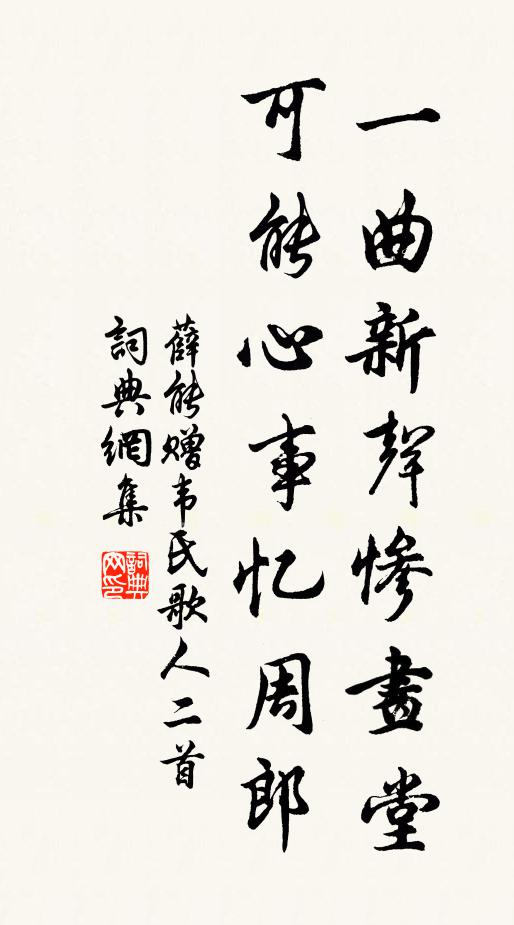 一曲新聲慘畫堂
可能心事忆周郎
薛能赠韦氏歌人二首
詞典網集
詞典网印